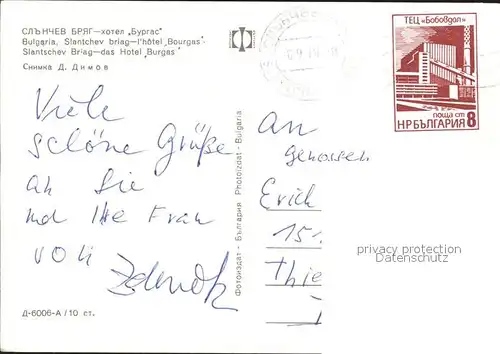 СЛЪНЧЕВ БРЯГ—хотел „Бургас"
Bulgaria, Slantchev briag—l'hôtel „Bourgas"
Slantschev Briag—das Hotel „Burgas"
Снимка Д. Димов
Viele
schöne Grüße
an Sie
und Ihre Frau
von
Д-6006-А/10 ст.
Фотоиздат - България - Photoizdat - Bulgaria
ТЕЦ „Бобовдол"
поща ст
НРБЪЛГАРИЯ 8
An
Genossen
Erich
15
Thie
privacy protection
Datenschutz